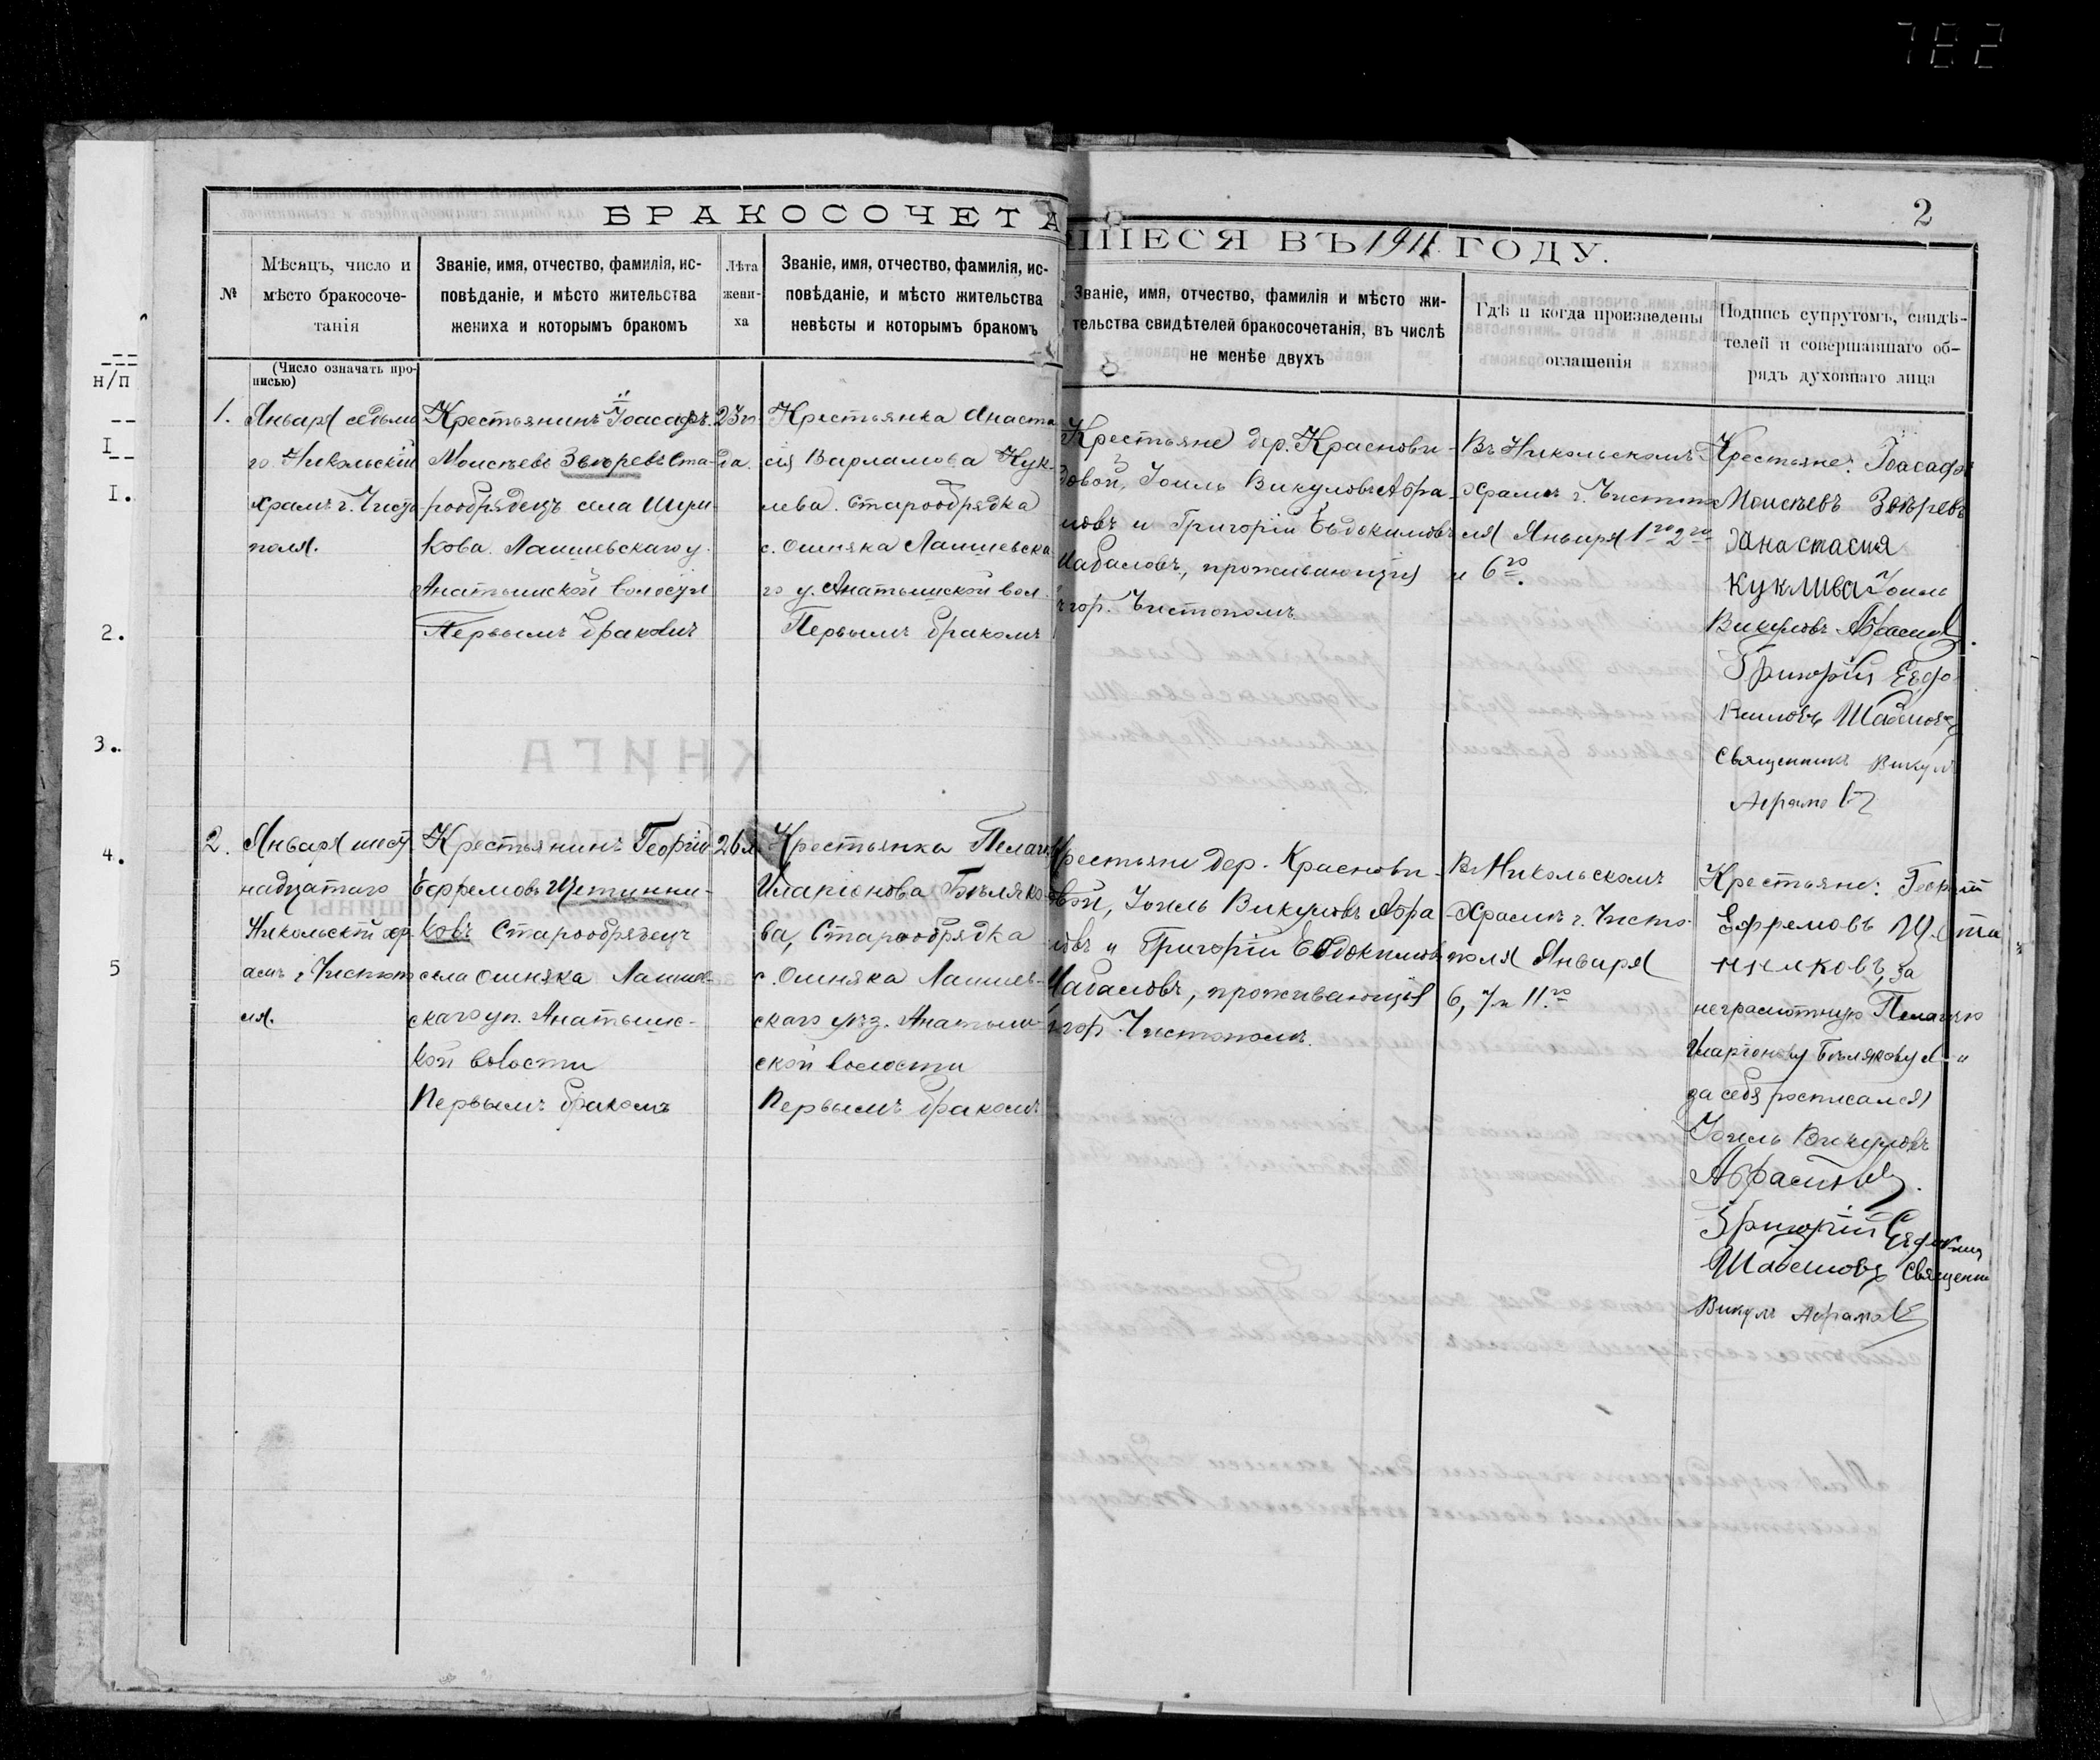 782
2
БРАКОСОЧЕТА
ШІЕСЯ ВЪ 1911 ГОДУ.
№
Мѣсяцъ, число и
мѣсто бракосоче-
танія
Званіе, имя, отчество, фамилія, ис-
повѣданіе, и мѣсто жительства
жениха и которымъ бракомъ
Лѣта
жени-
ха
Званіе, имя, отчество, фамилія, ис-
повѣданіе, и мѣсто жительства
невѣсты и которымъ бракомъ
Званіе, имя, отчество, фамилія и мѣсто жи-
тельства свидѣтелей бракосочетанія, въ числѣ
не менѣе двухъ
Гдѣ и когда произведены
оглашенія
Подпись супругомъ, свидѣ-
телей и совершавшаго об-
рядъ духовнаго лица
(Число означать про-
писью)
1.
Января седьма
го. Никольскій
храмъ г. Чисто
поля.
Крестьянинъ Іоасафъ
Моисѣевъ Звѣревъ Ста-
рообрядецъ села Шум-
кова Лаишевскаго у.
Анатышской волости
Первымъ бракомъ
23 го-
да.
Крестьянка Анаста
сія Варламова Кук-
лева. Старообрядка
с. Ошняка Лаишевска
го у. Анатышской вол.
Первымъ бракомъ
Крестьяне дер. Краснови-
довой, Іоиль Викуловъ Абра
мовъ и Григорій Евдокимовъ
Шабаловъ, проживающія
в гор. Чистополѣ.
Въ Никольскомъ
храмѣ г. Чистопо
ля Января 1го 2го
и 6го.
Крестьяне: Іоасафъ
Моисѣевъ Звѣревъ
Анастасия
Куклива Іоиль
Викуловъ Абрамовъ.
Григорій Евдо
кимовъ Шабаловъ
Священникъ Викулъ
Абрамовъ
2.
Января шест
надцатаго
Никольскій хр
амъ г. Чистопо
ля.
Крестьянинъ Георгій
Ефремовъ Щетинни-
ковъ Старообрядецъ
села Ошняка Лаишев-
скаго уп. Анатышс-
кой волости
Первымъ бракомъ
26 л
Крестьянка Пелагія
Иларіонова Бѣляко
ва, Старообрядка
с. Ошняка Лаишев-
скаго уѣз. Анатыш-
ской волости
Первымъ бракомъ
Крестьяни дер. Краснови-
довой, Іоиль Викуловъ Абра
мовъ и Григорій Евдокимовъ
Шабаловъ, проживающія
в гор. Чистополѣ.
Въ Никольскомъ
храмѣ г. Чисто
поля Января
6, 7 и 11го
Крестьяне: Георгій
Ефремовъ Щети
нниковъ, за
неграмотную Пелагию
Иларіонову Бѣлякову и
за себя росписался
Іоиль Викуловъ
Абрамовъ.
Григорій Евдоким
Шабаловъ Священни
Викулъ Абрамовъ
н/п
I
I.
2.
3.
4.
5
КНИГА